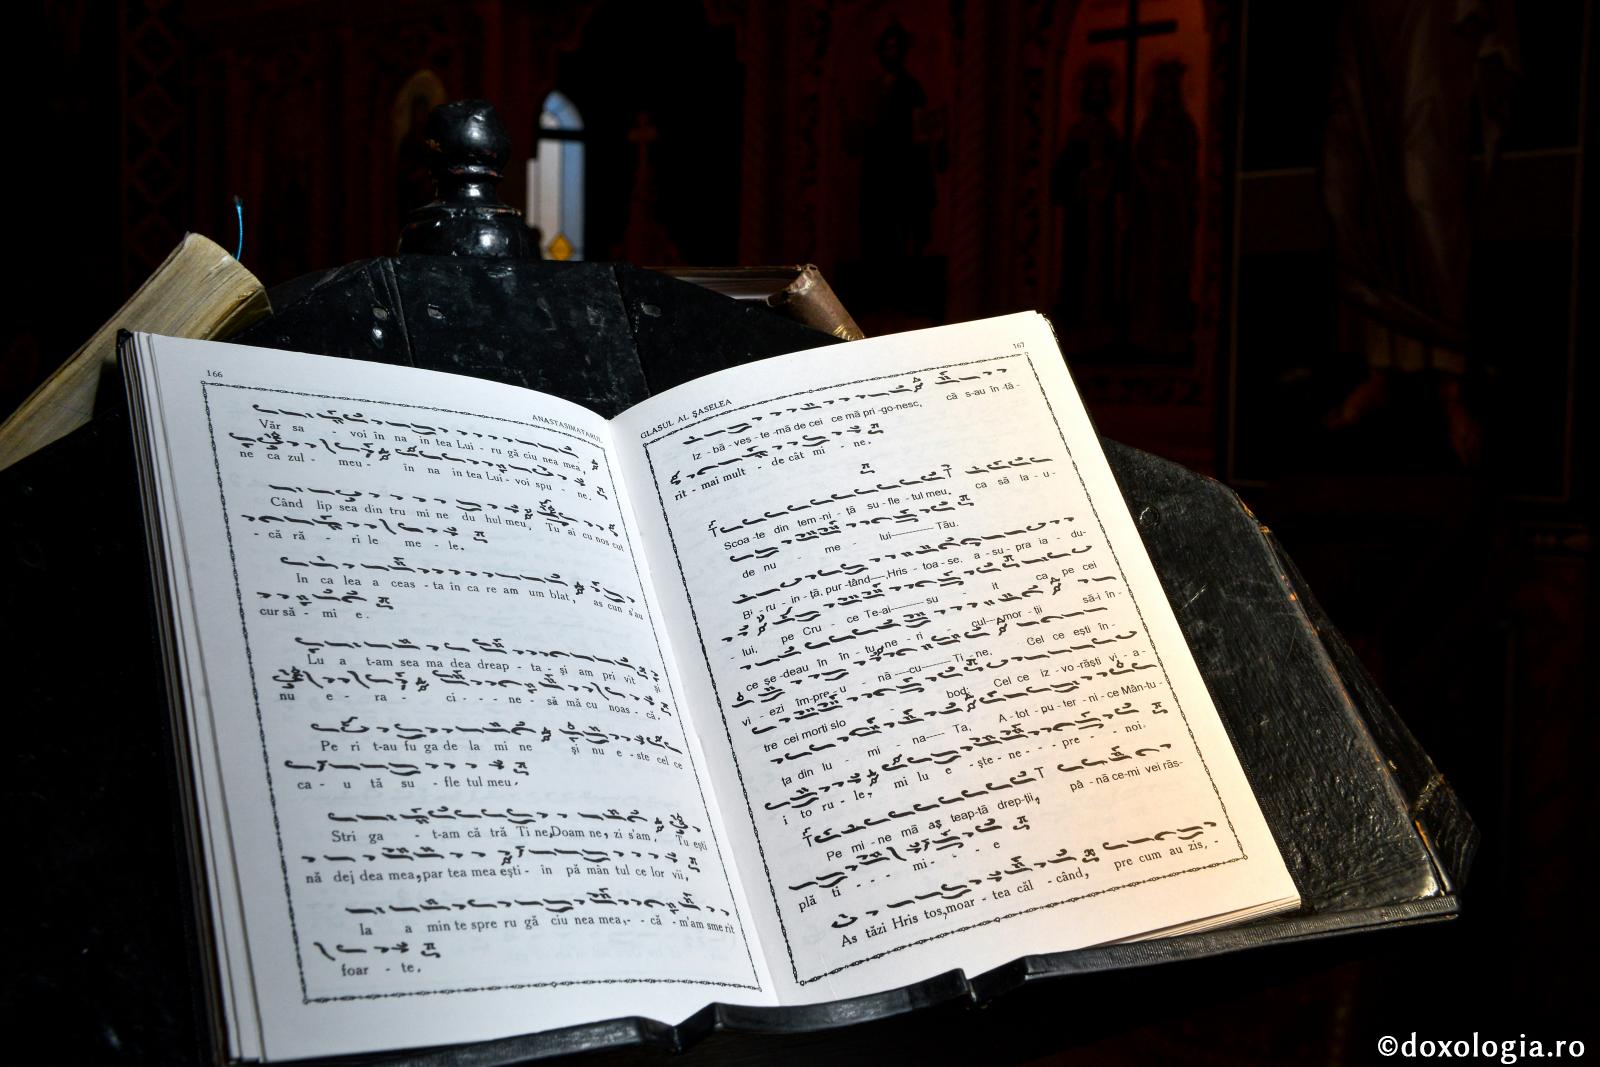 166
ANASTASIMATARUL
Văr sa - voi în na in tea Lui - ru gă ciu nea mea,
ne ca zul - meu - în na in tea Lui - voi spu - ne.
Când lip sea din tru mi ne du hul meu, Tu ai cu nos cut
- că ră - ri le me - le.
In ca lea a ceas - ta in ca re am um blat, as cun s'au
cur să - mi e.
Lu a t-am sea ma dea dreap - ta - și am pri vit și
nu e - ra - ci - - - ne - să mă cu noas - că.
Pe ri t-au fu ga de la mi ne și nu e - ste cel ce
ca - u tă su - fle tul meu.
Stri ga - t-am că tră Ti ne, Doam ne, zi s'am, Tu ești
nă dej dea mea, par tea mea ești - in pă mân tul ce lor vii,
Ia a min te spre ru gă ciu nea mea, - că - m'am sme rit
foar - te.
167
GLASUL AL ȘASELEA
Iz - bă - ves - te -mă de cei ce mă pri -go-nesc, că s-au în -tă-
rit - mai mult - de cât mi - ne.
Scoa -te din tem -ni - ță su -fle -tul meu. ca să la - u-
de nu - me - lui Tău.
Bi - ru - in -ță, pur -tând, Hris - toa -se. a - su - pra ia - du-
lui, pe Cru - ce Te-ai su - it ca pe cei
ce șe -deau în în - tu -ne - ri - cul mor -ții să-i în-
vi - ezi îm-pre- u - nă -cu Ti - ne. Cel ce ești în-
tre cei morți slo - bod; Cel ce iz - vo -răști vi - a-
ța din lu - mi - na Ta, A - tot - pu - ter - ni - ce Mân -tu-
i to ru - le, mi lu e - ște - ne - - - pre - noi.
Pe mi - ne mă aș teap-tă drep-ții, pâ - nă ce-mi vei răs-
plă ti - - - mi - - e
As tăzi Hris tos, moar - tea căl - când, pre cum au zis, -
©doxologia.ro